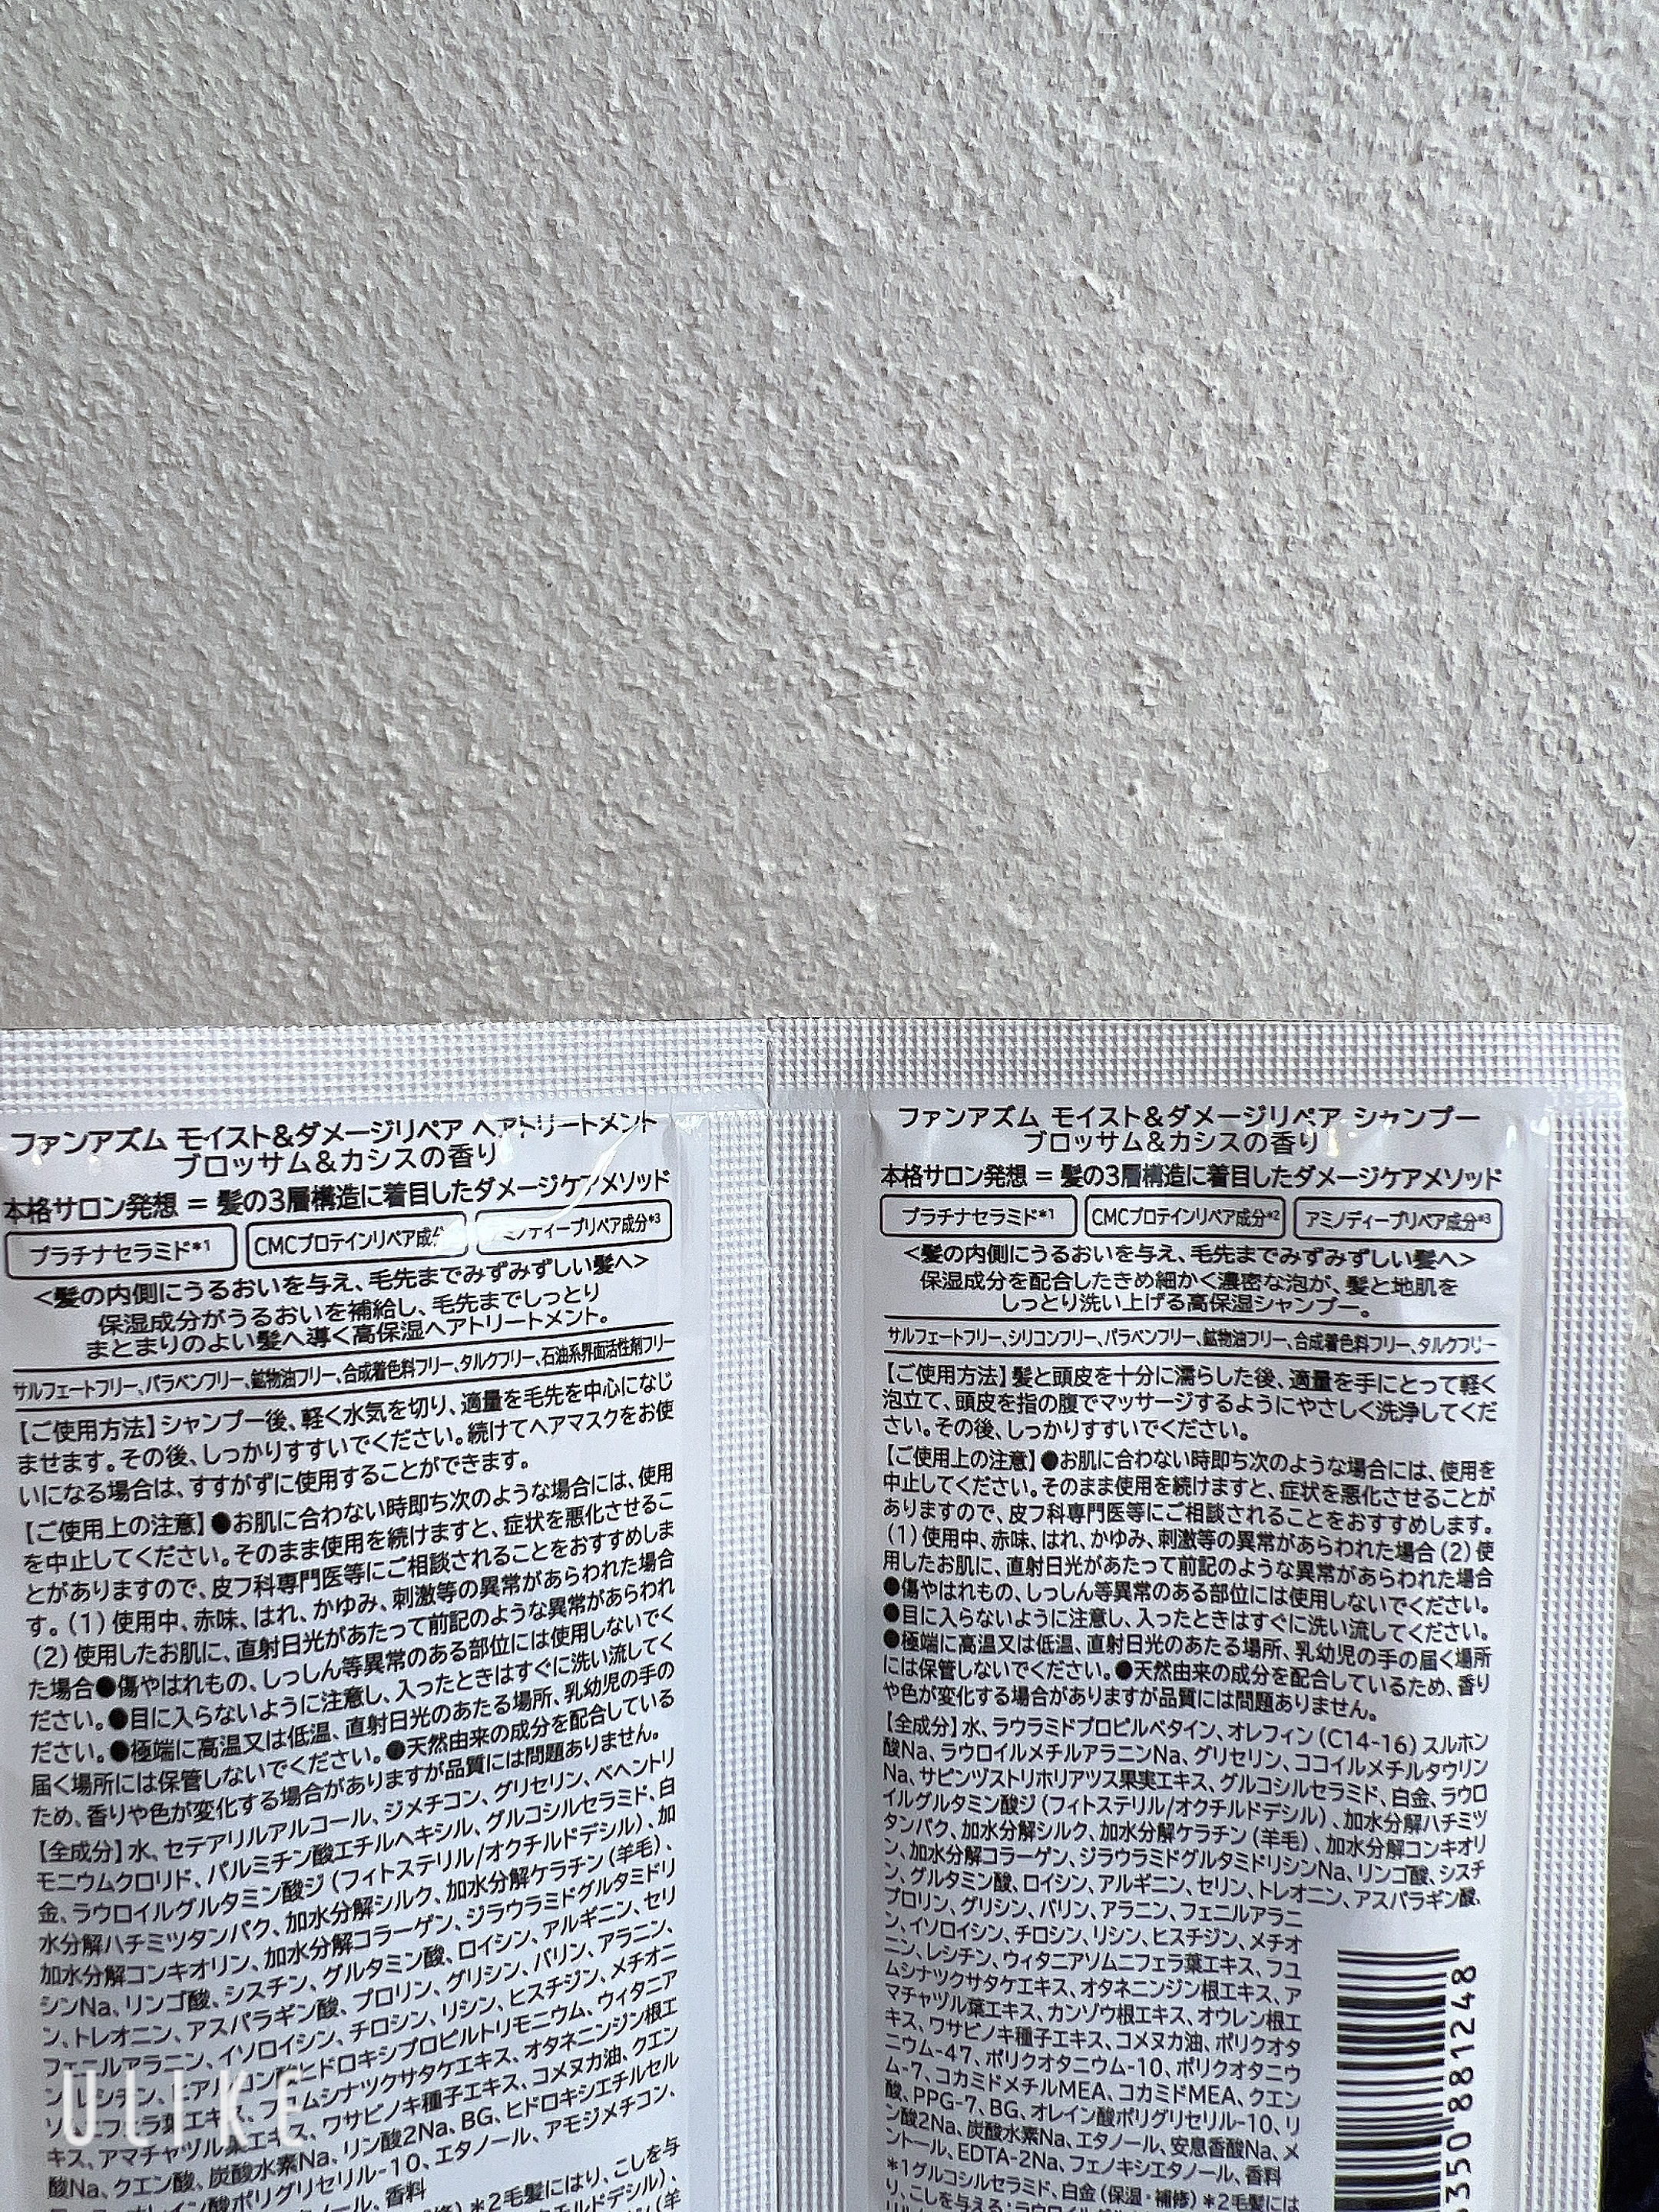 ファンアズム モイスト&ダメージリペア ヘアトリートメント
ブロッサム&カシスの香り
本格サロン発想 = 髪の3層構造に着目したダメージケアメソッド
プラチナセラミド*1
CMCプロテインリペア成分
ミノディープリペア成分*3
<髪の内側にうるおいを与え、毛先までみずみずしい髪へ>
保湿成分がうるおいを補給し、毛先までしっとり
まとまりのよい髪へ導く高保湿ヘアトリートメント。
サルフェートフリー、パラベンフリー、鉱物油フリー、合成着色料フリー、タルクフリー、石油系界面活性剤フリー
【ご使用方法】シャンプー後、軽く水気を切り、適量を毛先を中心になじ
ませます。その後、しっかりすすいでください。続けてヘアマスクをお使
いになる場合は、すすがずに使用することができます。
【ご使用上の注意】●お肌に合わない時即ち次のような場合には、使用
を中止してください。そのまま使用を続けますと、症状を悪化させるこ
とがありますので、皮フ科専門医等にご相談されることをおすすめしま
す。(1)使用中、赤味、はれ、かゆみ、刺激等の異常があらわれた場合
(2)使用したお肌に、直射日光があたって前記のような異常があらわれ
た場合●傷やはれもの、しっしん等異常のある部位には使用しないでく
ださい。●目に入らないように注意し、入ったときはすぐに洗い流してく
ださい。●極端に高温又は低温、直射日光のあたる場所、乳幼児の手の
届く場所には保管しないでください。●天然由来の成分を配合している
ため、香りや色が変化する場合がありますが品質には問題ありません。
【全成分】水、セテアリルアルコール、ジメチコン、グリセリン、ベヘントリ
モニウムクロリド、パルミチン酸エチルヘキシル、グルコシルセラミド、白
金、ラウロイルグルタミン酸ジ(フィトステリル/オクチルドデシル)、加
水分解ハチミツタンパク、加水分解シルク、加水分解ケラチン(羊毛)、
加水分解コンキオリン、加水分解コラーゲン、ジラウラミドグルタミドリ
シンNa、リンゴ酸、シスチン、グルタミン酸、ロイシン、アルギニン、セリ
ン、トレオニン、アスパラギン酸、プロリン、グリシン、バリン、アラニン、
フェニルアラニン、イソロイシン、チロシン、リシン、ヒスチジン、メチオニ
ン、レシチン、ヒアルロン酸ヒドロキシプロピルトリモニウム、ウィタニア
ソムニフェラ葉エキス、フユムシナツクサタケエキス、オタネニンジン根エ
キス、アマチャヅル葉エキス、ワサビノキ種子エキス、コメヌカ油、クエン
酸Na、クエン酸、炭酸水素Na、リン酸2Na、BG、ヒドロキシエチルセル
オレイン酸ポリグリセリル-10、エタノール、アモジメチコン、
ノール、香料
*2毛髪にはり、こしを与
ULIKE
ファンアズム モイスト&ダメージリペア シャンプー
ブロッサム&カシスの香り
本格サロン発想 = 髪の3層構造に着目したダメージケアメソッド
プラチナセラミド*1
CMCプロテインリペア成分*2
アミノディープリペア成分*3
<髪の内側にうるおいを与え、毛先までみずみずしい髪へ>
保湿成分を配合したきめ細かく濃密な泡が、髪と地肌を
しっとり洗い上げる高保湿シャンプー。
サルフェートフリー、シリコンフリー、パラベンフリー、鉱物油フリー、合成着色料フリー、タルクフリー
【ご使用方法】髪と頭皮を十分に濡らした後、適量を手にとって軽く
泡立て、頭皮を指の腹でマッサージするようにやさしく洗浄してくだ
さい。その後、しっかりすすいでください。
【ご使用上の注意】●お肌に合わない時即ち次のような場合には、使用を
中止してください。そのまま使用を続けますと、症状を悪化させることが
ありますので、皮フ科専門医等にご相談されることをおすすめします。
(1)使用中、赤味、はれ、かゆみ、刺激等の異常があらわれた場合(2)使
用したお肌に、直射日光があたって前記のような異常があらわれた場合
●傷やはれもの、しっしん等異常のある部位には使用しないでください。
●目に入らないように注意し、入ったときはすぐに洗い流してください。
●極端に高温又は低温、直射日光のあたる場所、乳幼児の手の届く場所
には保管しないでください。●天然由来の成分を配合しているため、香り
や色が変化する場合がありますが品質には問題ありません。
【全成分】水、ラウラミドプロピルベタイン、オレフィン(C14-16)スルホン
酸Na、ラウロイルメチルアラニンNa、グリセリン、ココイルメチルタウリン
Na、サピンヅストリホリアツス果実エキス、グルコシルセラミド、白金、ラウロ
イルグルタミン酸ジ(フィトステリル/オクチルドデシル)、加水分解ハチミツ
タンパク、加水分解シルク、加水分解ケラチン(羊毛)、加水分解コンキオリ
ン、加水分解コラーゲン、ジラウラミドグルタミドリシンNa、リンゴ酸、シスチ
ン、グルタミン酸、ロイシン、アルギニン、セリン、トレオニン、アスパラギン酸、
プロリン、グリシン、バリン、アラニン、フェニルアラニ
ン、イソロイシン、チロシン、リシン、ヒスチジン、メチオ
ニン、レシチン、ウィタニアソムニフェラ葉エキス、フユ
ムシナツクサタケエキス、オタネニンジン根エキス、ア
マチャヅル葉エキス、カンゾウ根エキス、オウレン根エ
キス、ワサビノキ種子エキス、コメヌカ油、ポリクオタ
ニウム-47、ポリクオタニウム-10、ポリクオタニウ
ム-7、コカミドメチルMEA、コカミドMEA、クエン
酸、PPG-7、BG、オレイン酸ポリグリセリル-10、リ
ン酸2Na、炭酸水素Na、エタノール、安息香酸Na、メ
ントール、EDTA-2Na、フェノキシエタノール、香料
*1グルコシルセラミド、白金(保湿・補修)*2毛髪には
り、こしを与える:ラウロイル
350 881248